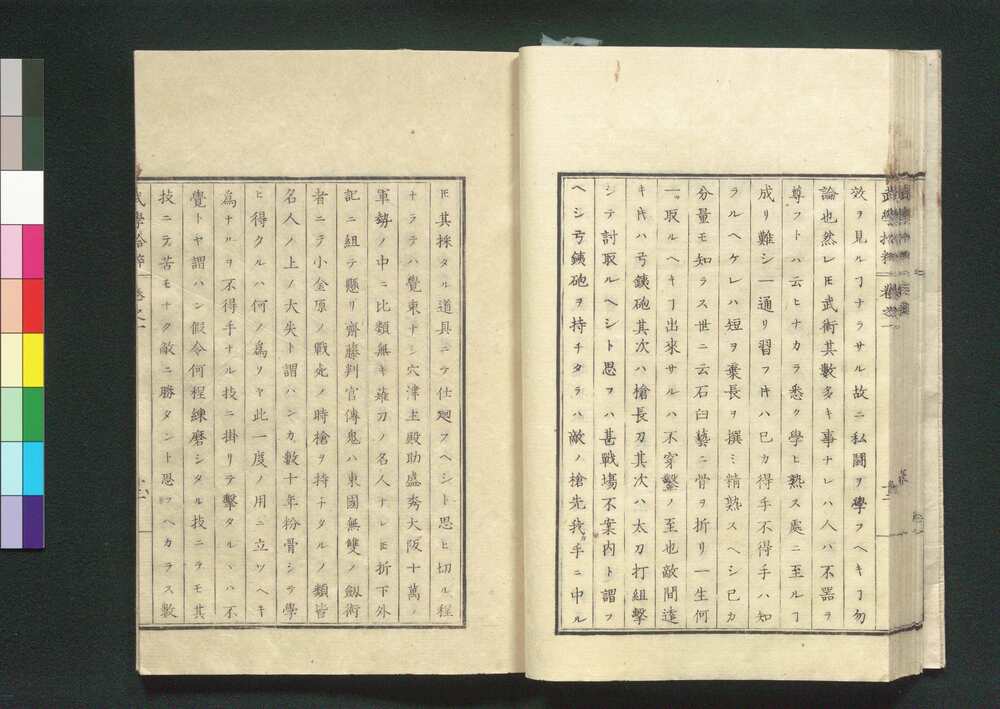 效ヲ見ルヿナラサル故ニ私鬪ヲ學フヘキヿ勿
論也然レ𪜈武術其數多キ事ナレハ人ハ不器ヲ
尊フトハ云ヒナカラ悉ク學ヒ熟ス處ニ至ルヿ
成リ難シ一通リ習フ𪜈ハ已カ得手不得手ハ知
ラルヘケレハ短ヲ棄長ヲ撰ミ精熟スヘシ已カ
分量モ知ラス世ニ云石臼藝ニ骨ヲ折リ一生何
一ツ取ルヘキヿ出來サルハ不穿鑿ノ至也敵間遠
キ𪜈ハ弓銕砲其次ハ槍長刀其次ハ太刀打組擊
シテ討取ルヘシト思フハ甚戰塲不案内ト謂フ
ヘシ弓銕砲ヲ持チタラハ敵ノ槍先我手ニ中ル
𪜈其採タル道具ニテ仕廻フヘシト思ヒ切ル程
ナラテハ覺束ナシ穴澤主殿助盛秀大阪十萬ノ
軍勢ノ中ニ比類無キ薙刀ノ名人ナレ𪜈折下外
記ニ組テ懸リ齊藤判官傳鬼ハ東國無雙ノ劔術
者ニテ小金原ノ戰死ノ時槍ヲ持チタルノ類皆
名人ノ上ノ大失ト謂ハンカ數十年粉骨シテ學
ヒ得タルハ何ノ爲ソヤ此一度ノ用ニ立ツヘキ
爲ナルヲ不得手ナル技ニ掛リテ擊タルヽハ不
覺トヤ謂ハン假令何程練磨シタル技ニテモ其
技ニテ苦モナク敵ニ勝タント思フヘカラス數
武學拾粹